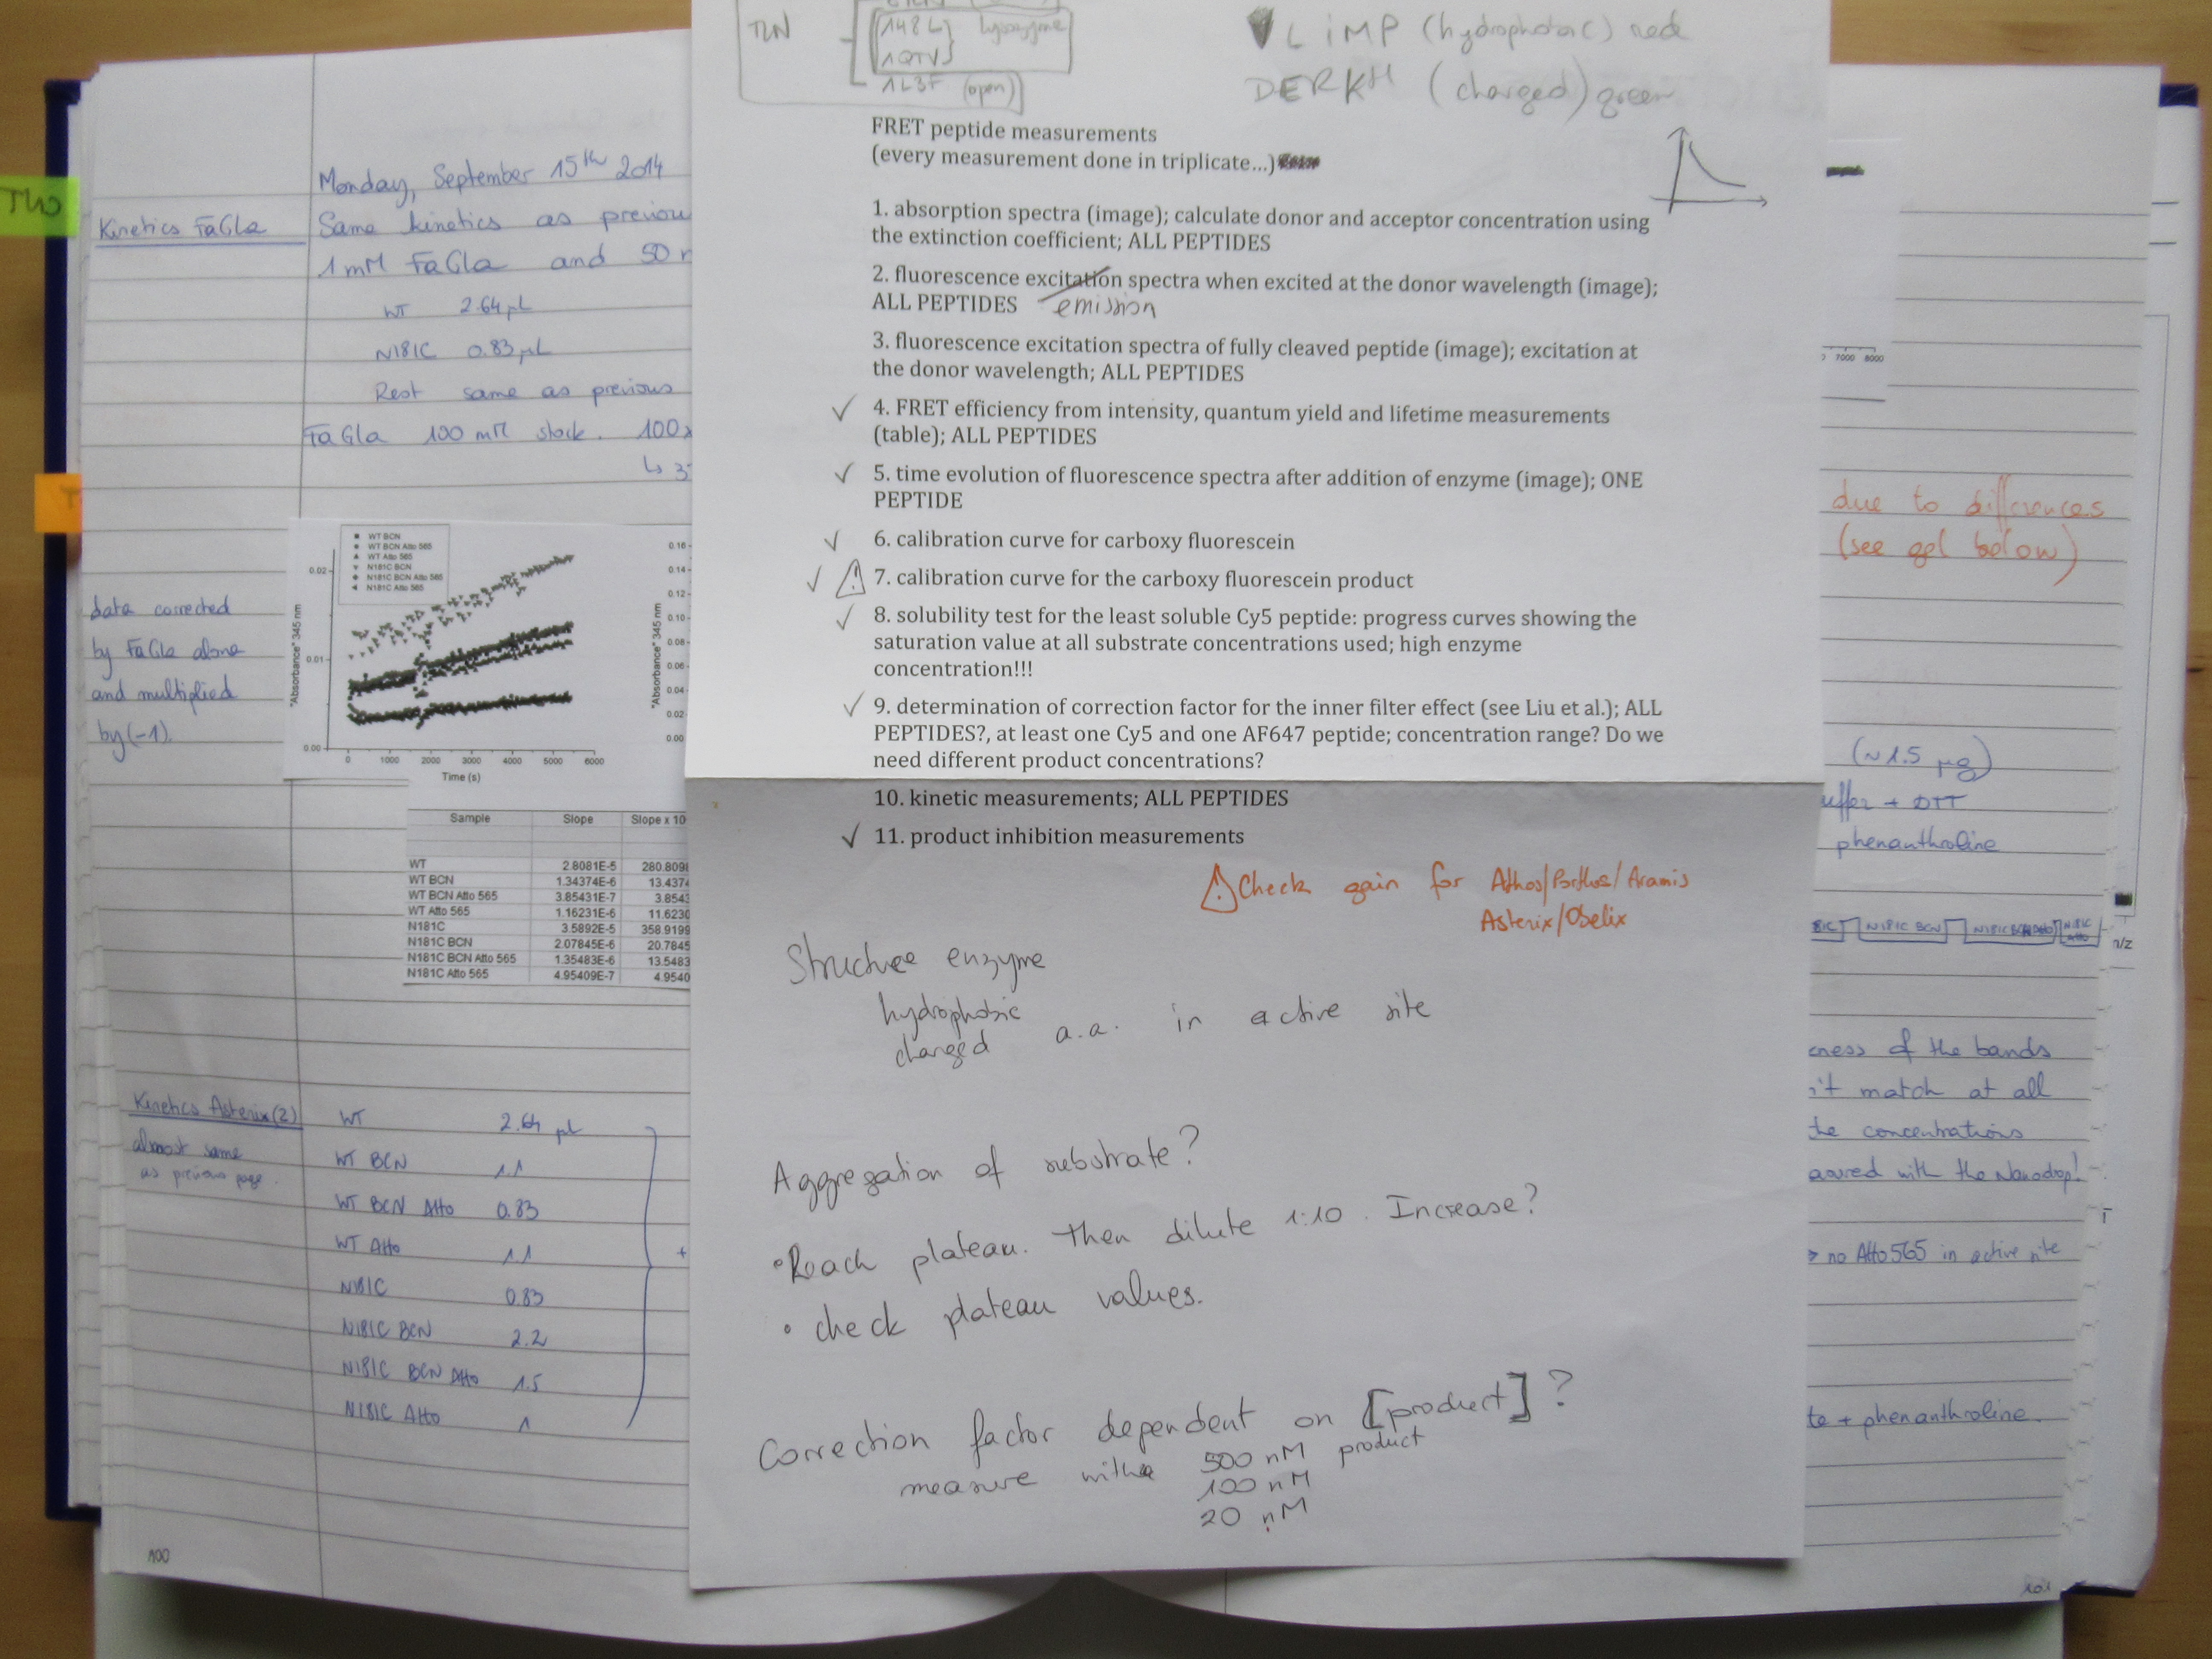 TLN
148L lysozyme
1QTV
1L3F (open)
LiMP (hydrophobic) red
DERKH (charged) green
FRET peptide measurements
(every measurement done in triplicate...)
1. absorption spectra (image); calculate donor and acceptor concentration using
the extinction coefficient; ALL PEPTIDES
2. fluorescence excitation spectra when excited at the donor wavelength (image);
ALL PEPTIDES emission
3. fluorescence excitation spectra of fully cleaved peptide (image); excitation at
the donor wavelength; ALL PEPTIDES
✓ 4. FRET efficiency from intensity, quantum yield and lifetime measurements
(table); ALL PEPTIDES
✓ 5. time evolution of fluorescence spectra after addition of enzyme (image); ONE
PEPTIDE
✓ 6. calibration curve for carboxy fluorescein
✓ ⚠ 7. calibration curve for the carboxy fluorescein product
✓ 8. solubility test for the least soluble Cy5 peptide: progress curves showing the
saturation value at all substrate concentrations used; high enzyme
concentration!!!
✓ 9. determination of correction factor for the inner filter effect (see Liu et al.); ALL
PEPTIDES?, at least one Cy5 and one AF647 peptide; concentration range? Do we
need different product concentrations?
10. kinetic measurements; ALL PEPTIDES
✓ 11. product inhibition measurements
⚠ Check gain for Athos/Porthos/Aramis
Asterix/Obelix
Structure enzyme
hydrophobic
charged a.a. in active site
Aggregation of substrate?
• Reach plateau. Then dilute 1:10. Increase?
• check plateau values.
Correction factor dependent on [product]?
measure with 500 nM product
100 nM
20 nM
TLN
T
Monday, September 15th 2014
Kinetics FaGla
Same kinetics as previou
1 mM FaGla and 50 n
WT 2.64 µL
N181C 0.83 µL
Rest same as previous
FaGla 100 mM stock. 100x
↳ 3
data corrected
by FaGla alone
and multiplied
by (-1).
WT BCN
WT BCN Atto 565
WT Atto 565
N181C BCN
N181C BCN Atto 565
N181C Atto 565
"Absorbance" 345 nm
0.02
0.01
0.00
0 1000 2000 3000 4000 5000 6000
Time (s)
"Absorbance" 345 nm
0.16
0.14
0.12
0.10
0.08
0.06
0.04
0.02
0.00
Sample Slope Slope x 10
WT 2.8081E-5 280.809
WT BCN 1.34374E-6 13.437
WT BCN Atto 565 3.85431E-7 3.854
WT Atto 565 1.16231E-6 11.6230
N181C 3.5892E-5 358.9199
N181C BCN 2.07845E-6 20.7845
N181C BCN Atto 565 1.35483E-6 13.5483
N181C Atto 565 4.95409E-7 4.9540
Kinetics Asterix (2)
almost same
as previous page.
WT 2.64 µL
WT BCN 1.1
WT BCN Atto 0.83
WT Atto 1.1
N181C 0.83
N181C BCN 2.2
N181C BCN Atto 1.5
N181C Atto 1
+
100
7000 8000
due to differences
(see gel below)
(~1.5 µg)
uffer + DTT
phenanthroline
81C N181C BCN N181C BCN Atto N181C Atto
n/z
kness of the bands
n't match at all
the concentrations
asured with the Nanodrop!
> no Atto 565 in active site
te + phenanthroline.
101